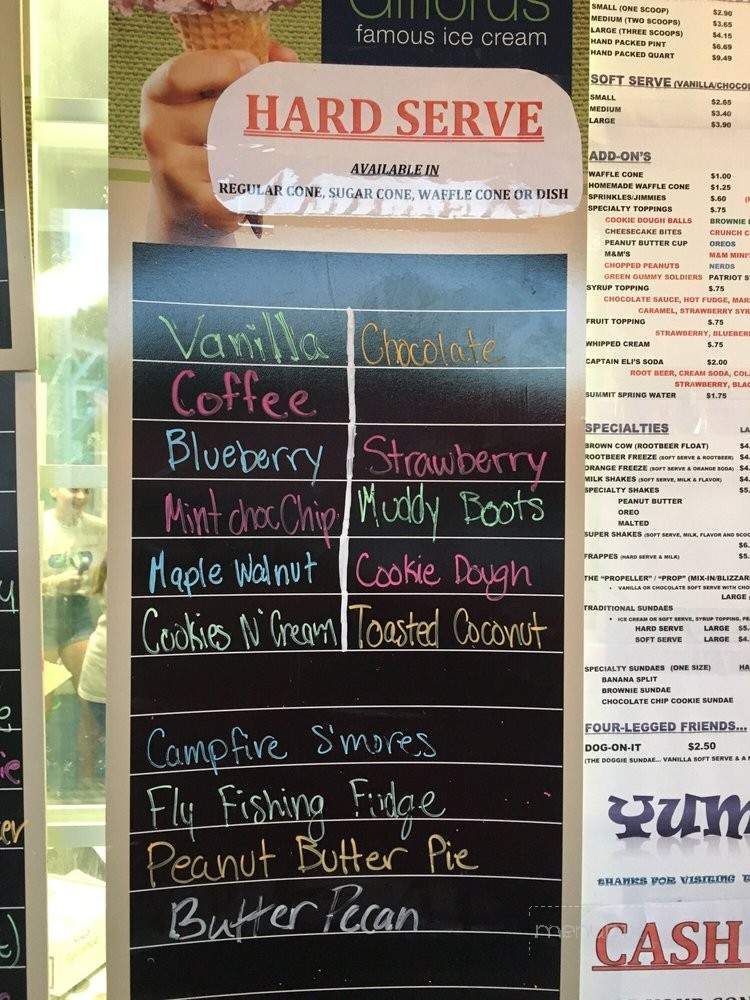 famous ice cream
HARD SERVE
AVAILABLE IN
REGULAR CONE, SUGAR CONE, WAFFLE CONE OR DISH
Vanilla Chocolate
Coffee
Blueberry Strawberry
Mint choc Chip Muddy Boots
Maple Walnut Cookie Dough
Cookies N' Cream Toasted Coconut
Campfire S'mores
Fly Fishing Fudge
Peanut Butter Pie
Butter Pecan
SMALL (ONE SCOOP) $2.90
MEDIUM (TWO SCOOPS) $3.65
LARGE (THREE SCOOPS) $4.15
HAND PACKED PINT $6.69
HAND PACKED QUART $9.49
SOFT SERVE (VANILLA/CHOCO
SMALL $2.65
MEDIUM $3.40
LARGE $3.90
ADD-ON'S
WAFFLE CONE $1.00
HOMEMADE WAFFLE CONE $1.25
SPRINKLES/JIMMIES $.60
SPECIALTY TOPPINGS $.75
COOKIE DOUGH BALLS BROWNIE
CHEESECAKE BITES CRUNCH C
PEANUT BUTTER CUP OREOS
M&M'S M&M MINI
CHOPPED PEANUTS NERDS
GREEN GUMMY SOLDIERS PATRIOT S
SYRUP TOPPING $.75
CHOCOLATE SAUCE, HOT FUDGE, MAR
CARAMEL, STRAWBERRY SYR
FRUIT TOPPING $.75
STRAWBERRY, BLUEBER
WHIPPED CREAM $.75
CAPTAIN ELI'S SODA $2.00
ROOT BEER, CREAM SODA, COL
STRAWBERRY, BLAC
SUMMIT SPRING WATER $1.75
SPECIALTIES LA
BROWN COW (ROOTBEER FLOAT) $4.
ROOTBEER FREEZE (SOFT SERVE & ROOTBEER) $4.
ORANGE FREEZE (SOFT SERVE & ORANGE SODA) $4.
MILK SHAKES (SOFT SERVE, MILK & FLAVOR) $4.
SPECIALTY SHAKES $5.
PEANUT BUTTER
OREO
MALTED
SUPER SHAKES (SOFT SERVE, MILK, FLAVOR AND SCOO
$6.
FRAPPES (HARD SERVE & MILK) $5.
THE "PROPELLER" / "PROP" (MIX-IN/BLIZZAR
VANILLA OR CHOCOLATE SOFT SERVE WITH CHO
LARGE
TRADITIONAL SUNDAES
ICE CREAM OR SOFT SERVE, SYRUP TOPPING, PE
HARD SERVE LARGE $5.
SOFT SERVE LARGE $4.
SPECIALTY SUNDAES (ONE SIZE) HA
BANANA SPLIT
BROWNIE SUNDAE
CHOCOLATE CHIP COOKIE SUNDAE
FOUR-LEGGED FRIENDS...
DOG-ON-IT $2.50
(THE DOGGIE SUNDAE... VANILLA SOFT SERVE & A
YUM
THANKS FOR VISITING
CASH